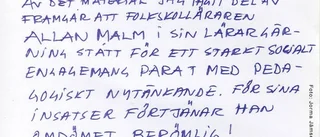 AV DET MATERIAL JAG TAGIT DEL AV
FRAMGÅR ATT FOLKSKOLLÄRAREN
ALLAN MALM I SIN LÄRARGÄR-
NING STÅTT FÖR ETT STARKT SOCIALT
ENGAGEMANG PARAT MED PEDA-
GOGISKT NYTÄNKANDE. FÖR SINA
INSATSER FÖRTJÄNAR HAN
OMDÖMET BERÖMLIG!
Foto: Jorma